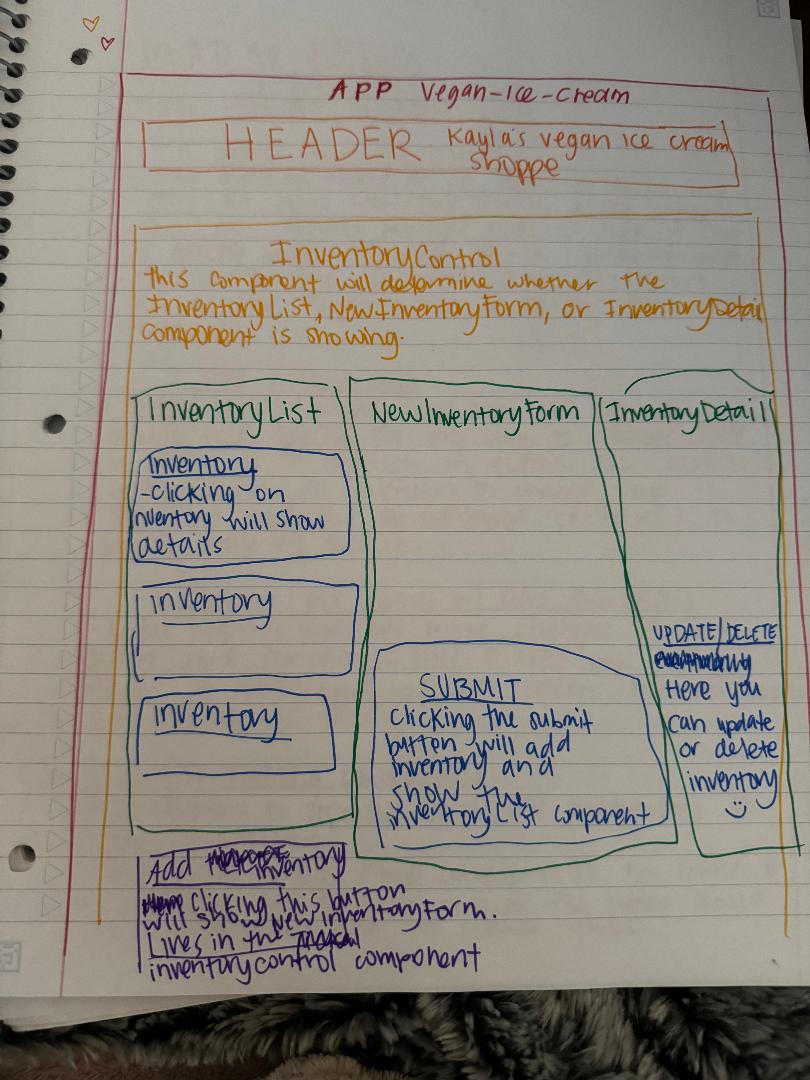 APP Vegan-Ice-Cream
HEADER Kayla's vegan ice cream
shoppe
InventoryControl
this component will determine whether the
InventoryList, NewInventoryForm, or InventoryDetail
component is showing.
InventoryList
Inventory
-clicking on
nventory will show
details
inventory
inventory
NewInventoryForm
SUBMIT
clicking the submit
button will add
inventory and
show the
inventoryList component
InventoryDetail
UPDATE/DELETE
Here you
can update
or delete
inventory
Add inventory
clicking this button
will show NewInventoryForm.
Lives in the
inventorycontrol component